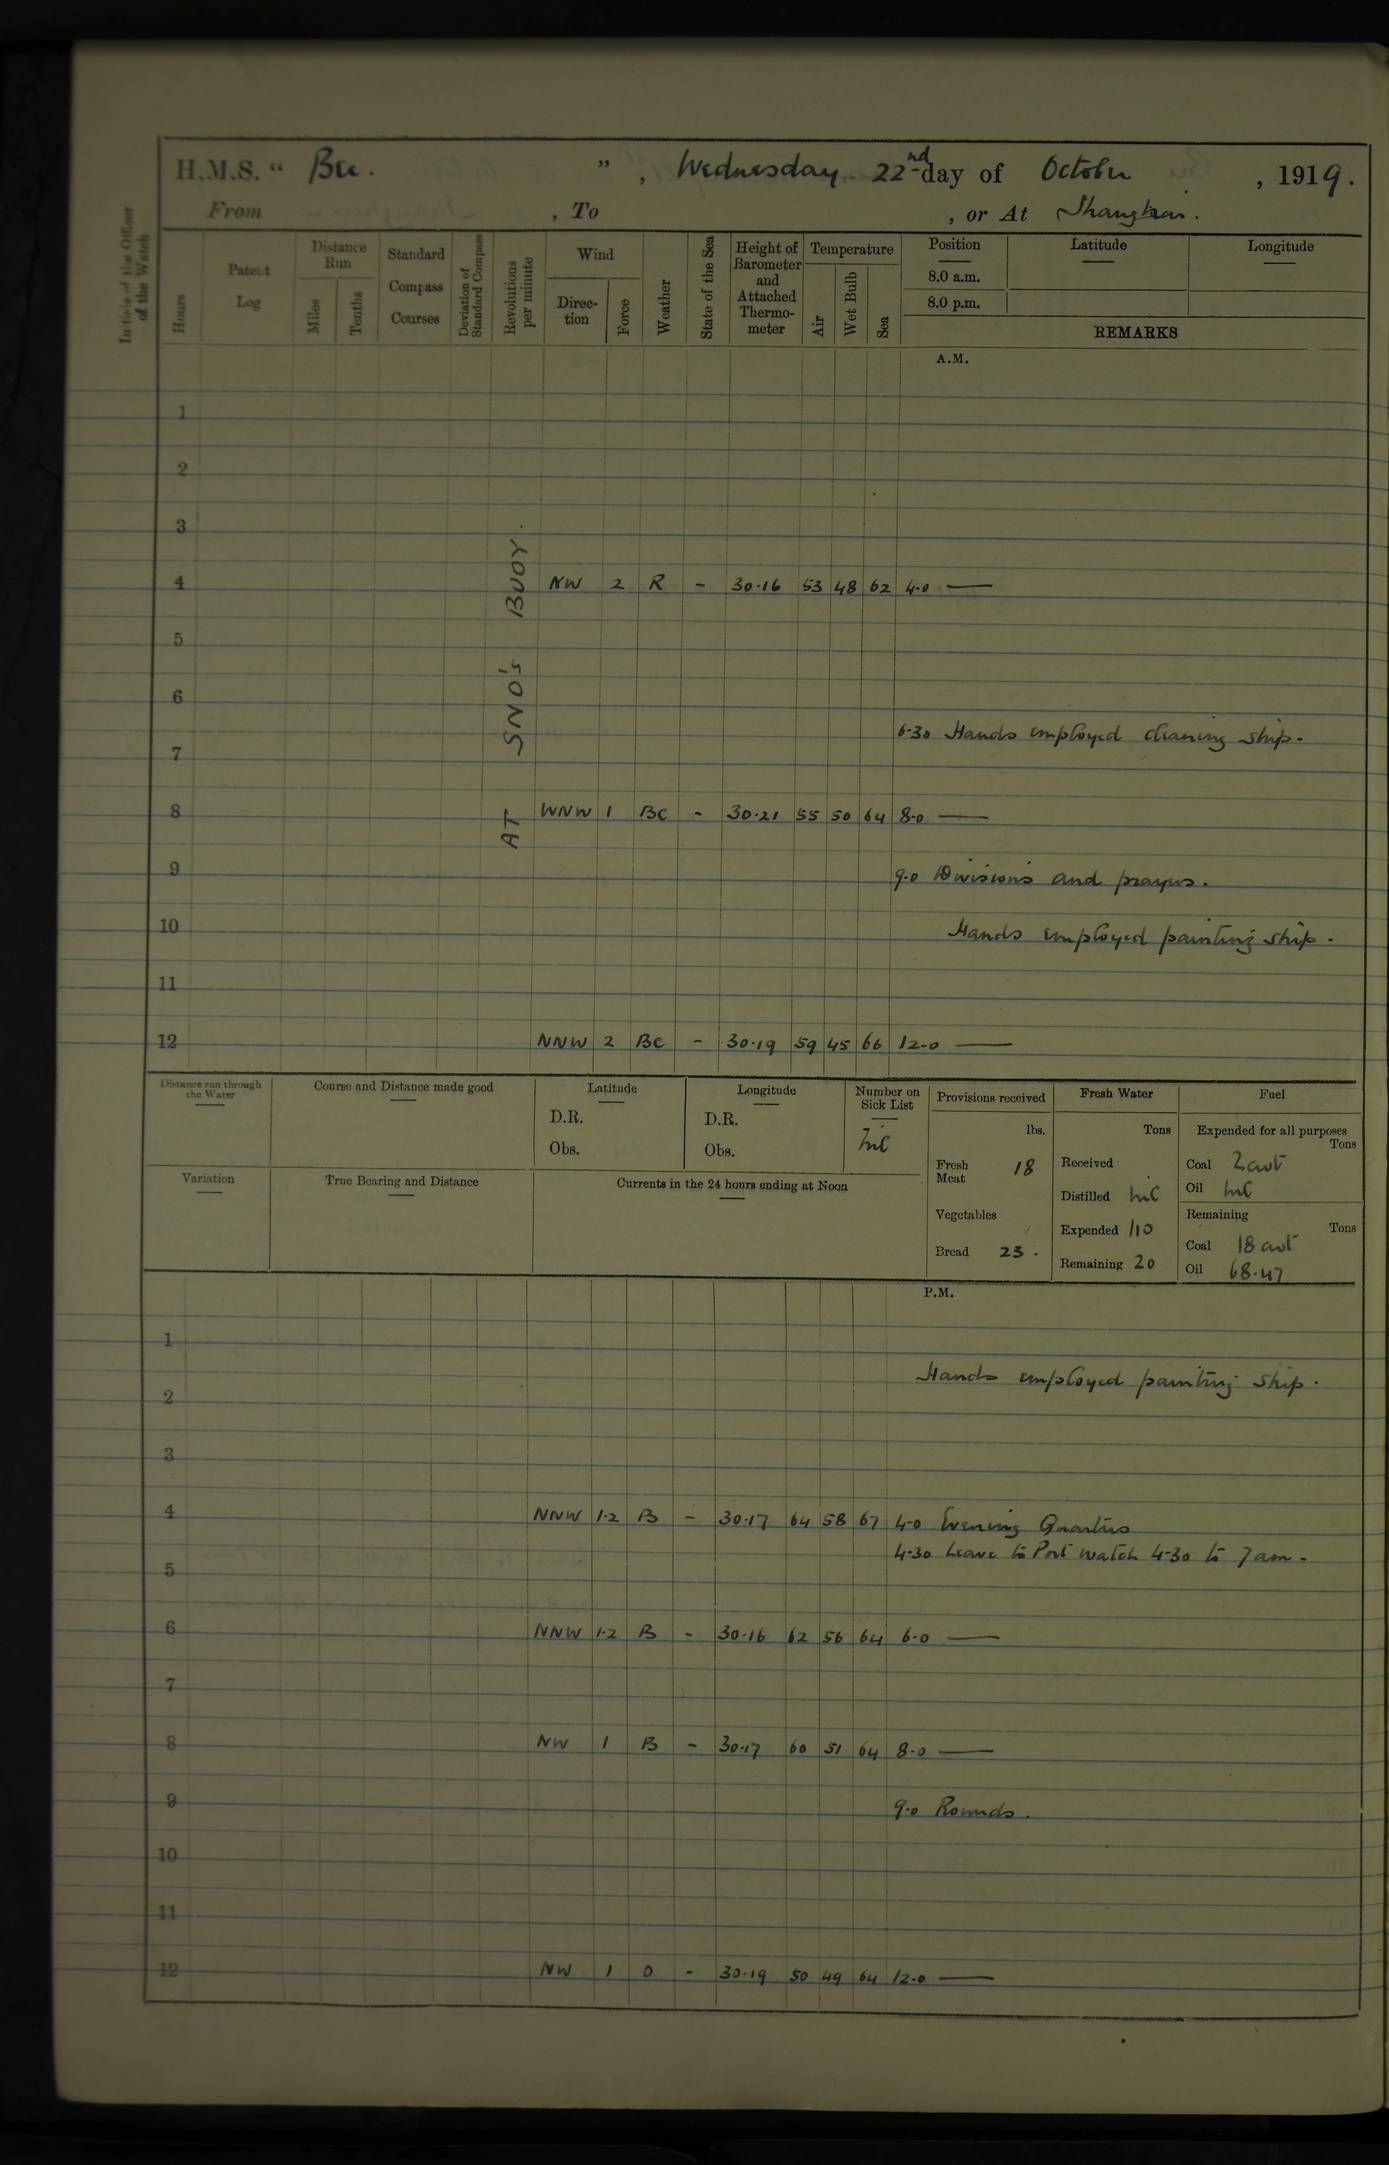 H.M.S. “ Bee. ”, Wednesday 22nd day of October, 1919.
From , To , or At Shanghai.
Initials of the Officer of the Watch
Hours
Patent Log
Distance Run
Miles
Tenths
Standard Compass Courses
Deviation of Standard Compass
Revolutions per minute
Wind
Direction
Force
Weather
State of the Sea
Height of Barometer and Attached Thermometer
Temperature
Air
Wet Bulb
Sea
Position
Latitude
Longitude
8.0 a.m.
8.0 p.m.
REMARKS
A.M.
AT SNO's BUOY.
1
2
3
4 NW 2 R - 30.16 53 48 62 4.0 —
5
6
6.30 Hands employed cleaning ship.
7
8 WNW 1 BC - 30.21 55 50 64 8.0 —
9 9.0 Divisions and prayers.
10 Hands employed painting ship.
11
12 NNW 2 BC - 30.19 59 45 66 12.0 —
Distance run through the Water
Course and Distance made good
Latitude
D.R.
Obs.
Longitude
D.R.
Obs.
Number on Sick List
Nil
Variation
True Bearing and Distance
Currents in the 24 hours ending at Noon
Provisions received
lbs.
Fresh Meat 18
Vegetables
Bread 23.
Fresh Water
Tons
Received
Distilled Nil
Expended 1/10
Remaining 20
Fuel
Expended for all purposes
Tons
Coal 2 cwt
Oil Nil
Remaining
Tons
Coal 18 cwt
Oil 68.47
P.M.
1
Hands employed painting ship.
2
3
4 NNW 1-2 B - 30.17 64 58 67 4.0 Evening Quarters
4.30 Leave to Port watch 4.30 to 7am.
5
6 NNW 1-2 B - 30.16 62 56 64 6.0 —
7
8 NW 1 B - 30.17 60 51 64 8.0 —
9 9.0 Rounds.
10
11
12 NW 1 O - 30.19 50 49 64 12.0 —